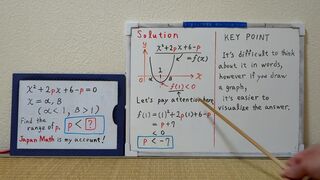 x²+2px+6-p=0
x=α, β
(α<1, β>1)
Find the
range of p.
p < ?
Japan Math is my account!
Solution
x²+2px+6-p
=f(x)
y
1
x
0
f(1)<0
Let's pay attention here.
f(1)=(1)²+2p(1)+6-p
=p+7
<0
p<-7
KEY POINT
It's difficult to think
about it in words,
however if you draw
a graph,
it's easier to
visualize the answer.